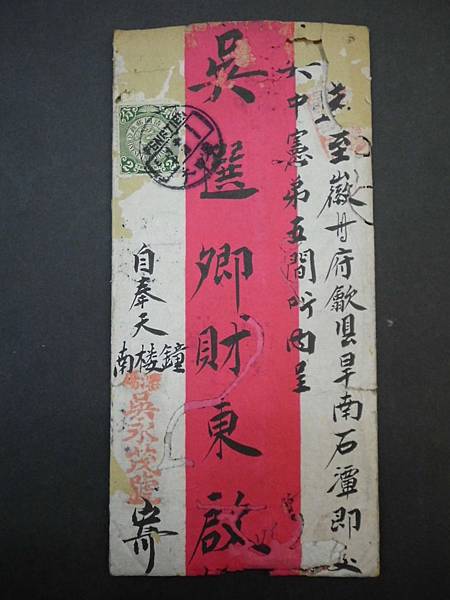 至徽州府歙县旱南石潭即交
大中憲弟五間所内呈
吳選卿財東啟
自奉天
鐘棱南
吳永茂號
寄